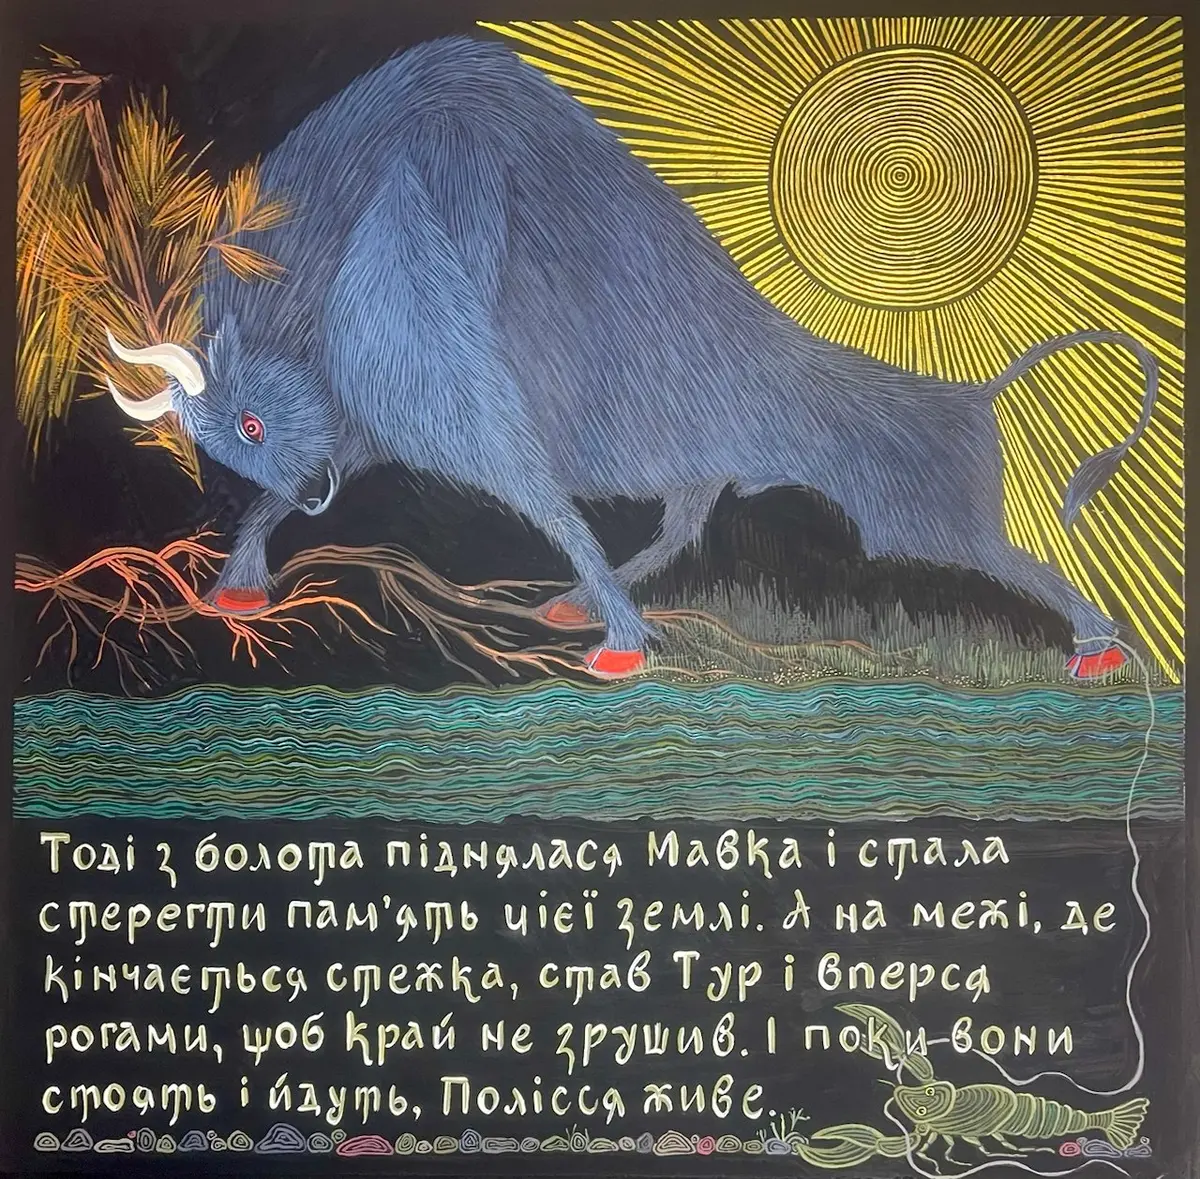 Тоді з болота піднялася Мавка і стала
стерегти пам'ять цієї землі. А на межі, де
кінчається стежка, став Тур і вперся
рогами, щоб край не зрушив. І поки вони
стоять і йдуть, Полісся живе.